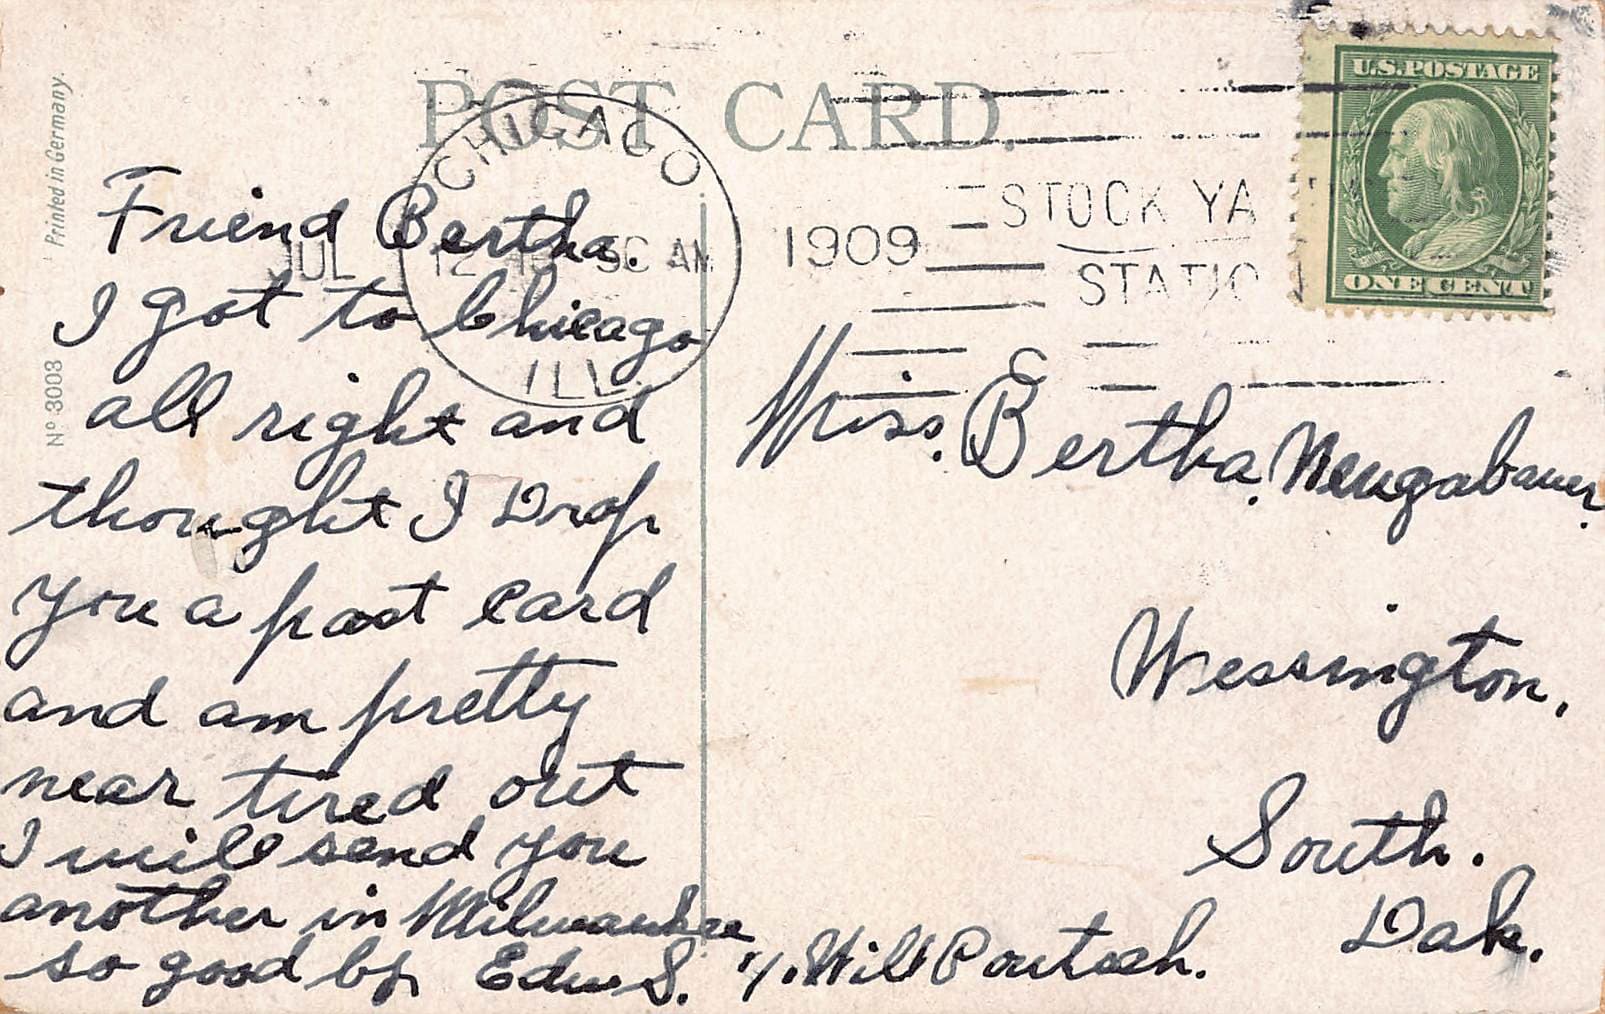 POST CARD.
Printed in Germany.
Nº 3003
CHICAGO
ILL.
JUL
12
AM
1909
STOCK YA
STATIO
U.S. POSTAGE
ONE CENT
Friend Bertha.
I got to Chicago
all right and
thought I Drop
you a post card
and am pretty
near tired out
I will send you
another in Milwaukee
so good by Edw S.
Miss. Bertha Neugabauer.
Wessington,
South.
Dak.
Will